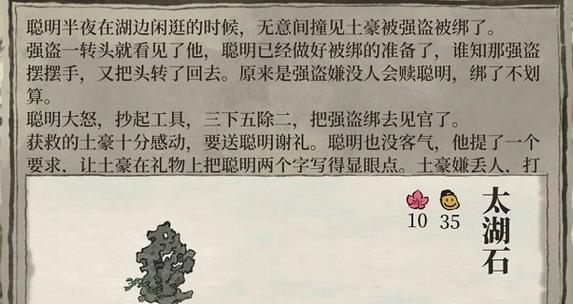 聪明半夜在湖边闲逛的时候，无意间撞见土豪被强盗被绑了。
强盗一转头就看见了他，聪明已经做好被绑的准备了，谁知那强盗
摆摆手，又把头转了回去。原来是强盗嫌没人会赎聪明，绑了不划
算。
聪明大怒，抄起工具，三下五除二，把强盗绑去见官了。
获救的土豪十分感动，要送聪明谢礼。聪明也没客气，他提了一个
要求，让土豪在礼物上把聪明两个字写得显眼点。土豪嫌丢人，打
太湖石
10 35